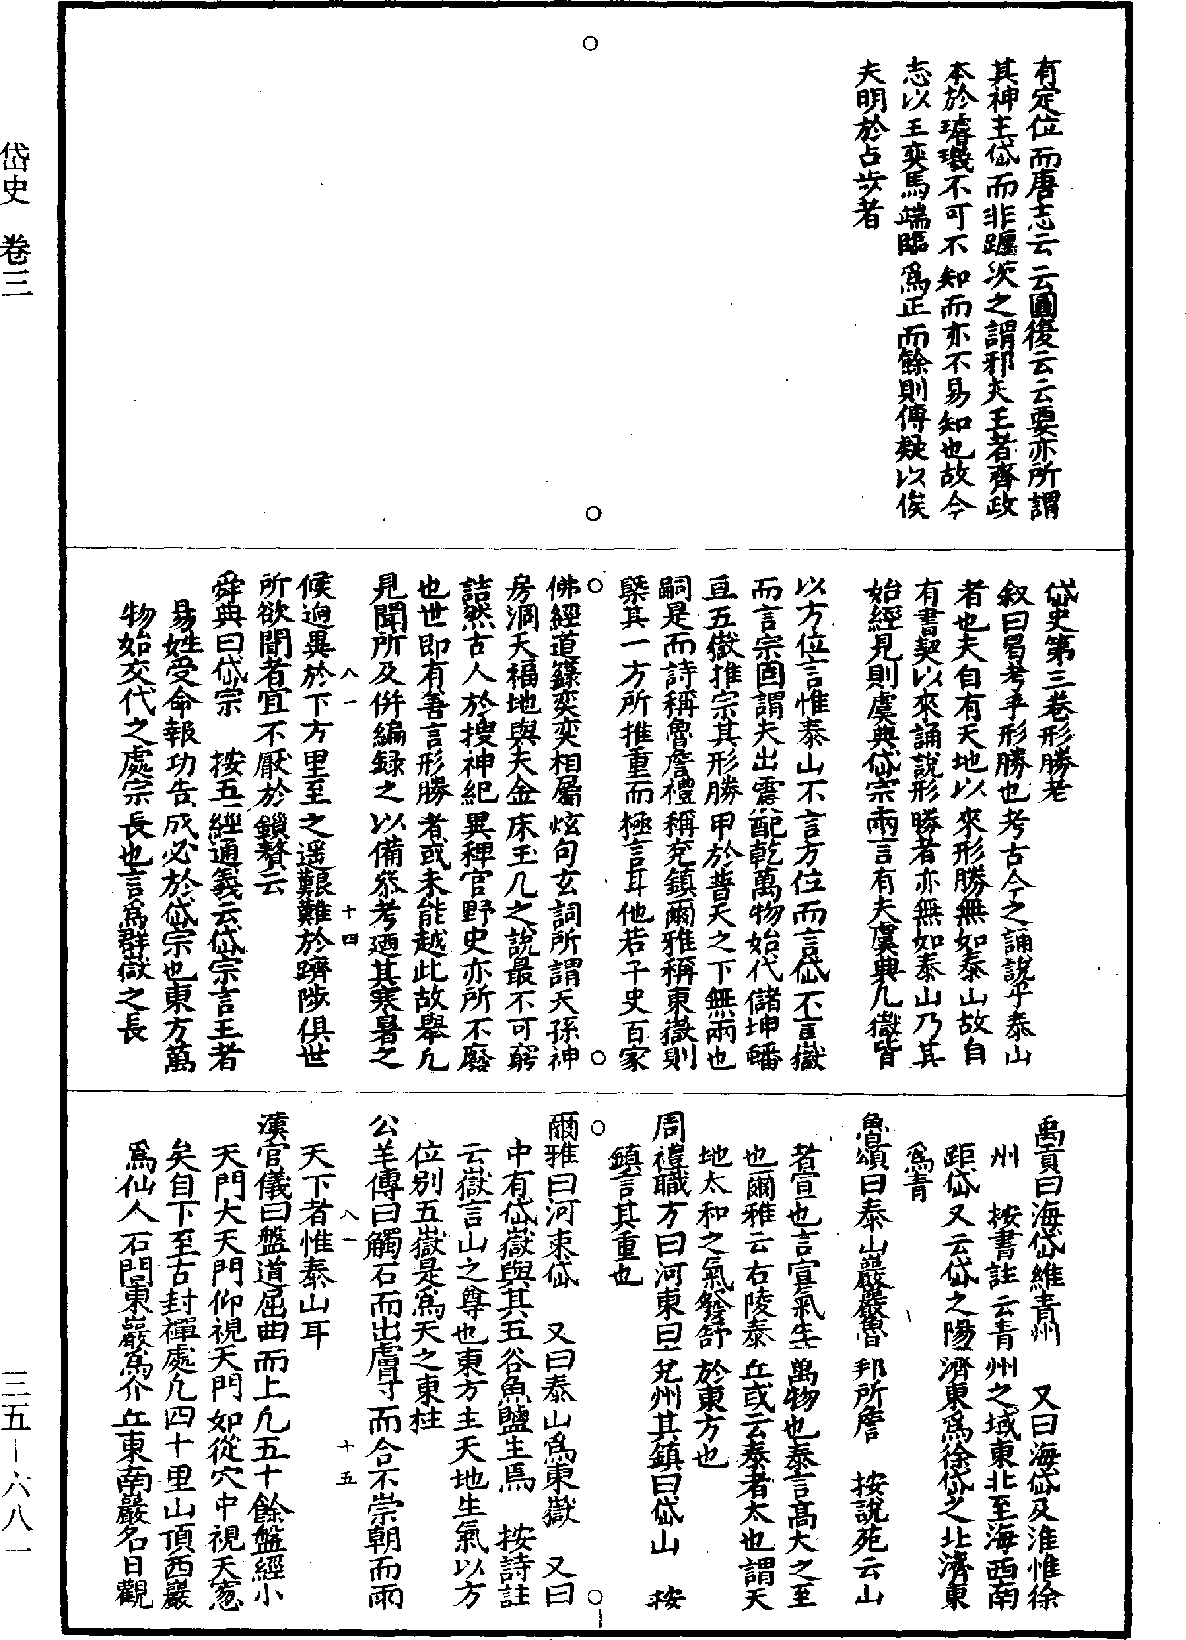 岱史 卷三
有定位而唐志云云圓復云云要亦所謂
其神主岱而非躔次之謂邪夫王者齊政
本於璿璣不可不知而亦不易知也故今
志以王奕馬端臨爲正而餘則傳疑以俟
夫明於占步者
岱史第三卷形勝考
叙曰曷考乎形勝也考古今之誦說乎泰山
者也夫自有天地以來形勝無如泰山故自
有書契以來誦說形勝者亦無如泰山乃其
始經見則虞典岱宗兩言有夫虞典凡嶽皆
以方位言惟泰山不言方位而言岱不言嶽
而言宗固謂夫出震配乾萬物始代儲坤皤
亘五嶽推宗其形勝甲於普天之下無兩也
嗣是而詩稱魯詹禮稱兗鎮爾雅稱東嶽則
槩其一方所推重而極言耳他若子史百家
佛經道籙奕奕相屬炫句玄詞所謂天孫神
房洞天福地與夫金床玉几之說最不可窮
詰然古人於搜神紀異稗官野史亦所不廢
也世即有善言形勝者或未能越此故舉凡
見聞所及併編録之以備叅考廼其寒暑之
候逈異於下方里至之遥艱難於躋陟俱世
所欲聞者宜不厭於鎖贅云
舜典曰岱宗 按五經通義云岱宗言王者
易姓受命報功告成必於岱宗也東方萬
物始交代之處宗長也言爲群嶽之長
八一
十四
禹貢曰海岱維青州 又曰海岱及淮惟徐
州 按書註云青州之域東北至海西南
距岱又云岱之陽濟東爲徐岱之北濟東
爲青
魯頌曰泰山巖巖魯邦所詹 按說苑云山
者宣也言宣氣生萬物也泰言高大之至
也爾雅云右陵泰丘或云泰者太也謂天
地太和之氣發舒於東方也
周禮職方曰河東曰兗州其鎮曰岱山 按
鎮言其重也
爾雅曰河東岱 又曰泰山爲東嶽 又曰
中有岱嶽與其五谷魚鹽生焉 按詩註
云嶽言山之尊也東方主天地生氣以方
位別五嶽是爲天之東柱
公羊傳曰觸石而出膚寸而合不崇朝而雨
天下者惟泰山耳
漢官儀曰盤道屈曲而上凡五十餘盤經小
天門大天門仰視天門如從穴中視天窻
矣自下至古封禪處凡四十里山頂西巖
爲仙人石閭東巖爲介丘東南巖名日觀
八一
十五
三五—六八一